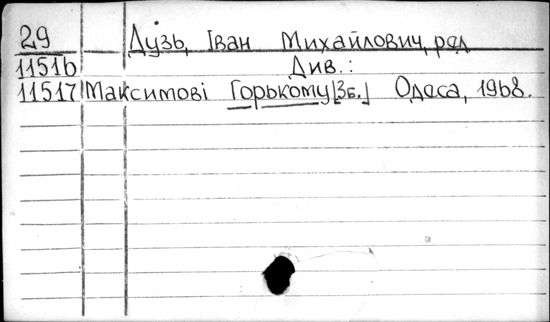 29 Дузь, Іван Михайлович, ред
11516 Див.:
11517 Максимові Горькому [Зб.] Одеса, 1968.